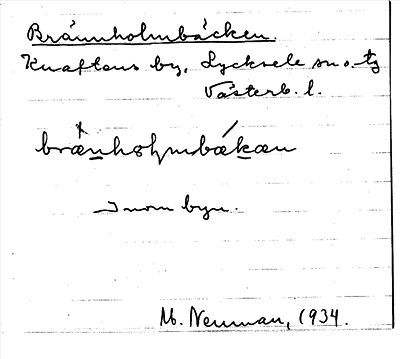 Brännholmbäcken.
Knaftens by, Lycksele sn o. tg
Västerb. l.
brænholmbækæn
Inom byn.
M. Nenuman, 1934.